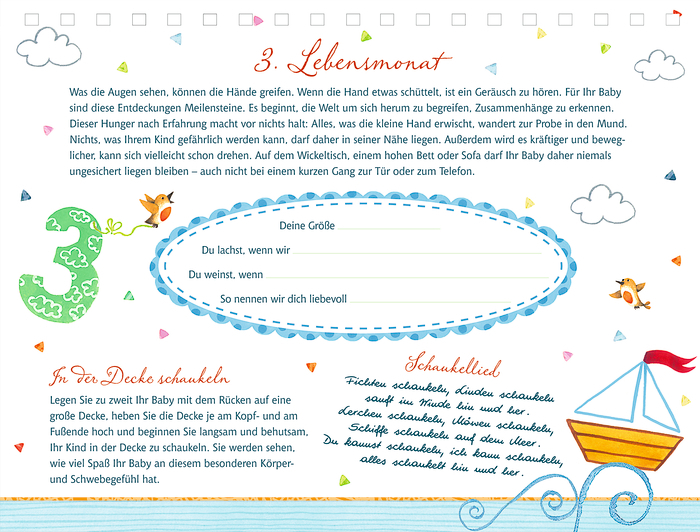 3. Lebensmonat
Was die Augen sehen, können die Hände greifen. Wenn die Hand etwas schüttelt, ist ein Geräusch zu hören. Für Ihr Baby
sind diese Entdeckungen Meilensteine. Es beginnt, die Welt um sich herum zu begreifen, Zusammenhänge zu erkennen.
Dieser Hunger nach Erfahrung macht vor nichts halt: Alles, was die kleine Hand erwischt, wandert zur Probe in den Mund.
Nichts, was Ihrem Kind gefährlich werden kann, darf daher in seiner Nähe liegen. Außerdem wird es kräftiger und beweg-
licher, kann sich vielleicht schon drehen. Auf dem Wickeltisch, einem hohen Bett oder Sofa darf Ihr Baby daher niemals
ungesichert liegen bleiben – auch nicht bei einem kurzen Gang zur Tür oder zum Telefon.
3
Deine Größe
Du lachst, wenn wir
Du weinst, wenn
So nennen wir dich liebevoll
In der Decke schaukeln
Legen Sie zu zweit Ihr Baby mit dem Rücken auf eine
große Decke, heben Sie die Decke je am Kopf- und am
Fußende hoch und beginnen Sie langsam und behutsam,
Ihr Kind in der Decke zu schaukeln. Sie werden sehen,
wie viel Spaß Ihr Baby an diesem besonderen Körper-
und Schwebegefühl hat.
Schaukellied
Fichten schaukeln, Linden schaukeln
sanft im Winde hin und her.
Lerchen schaukeln, Möwen schaukeln,
Schiffe schaukeln auf dem Meer.
Du kannst schaukeln, ich kann schaukeln,
alles schaukelt hin und her.